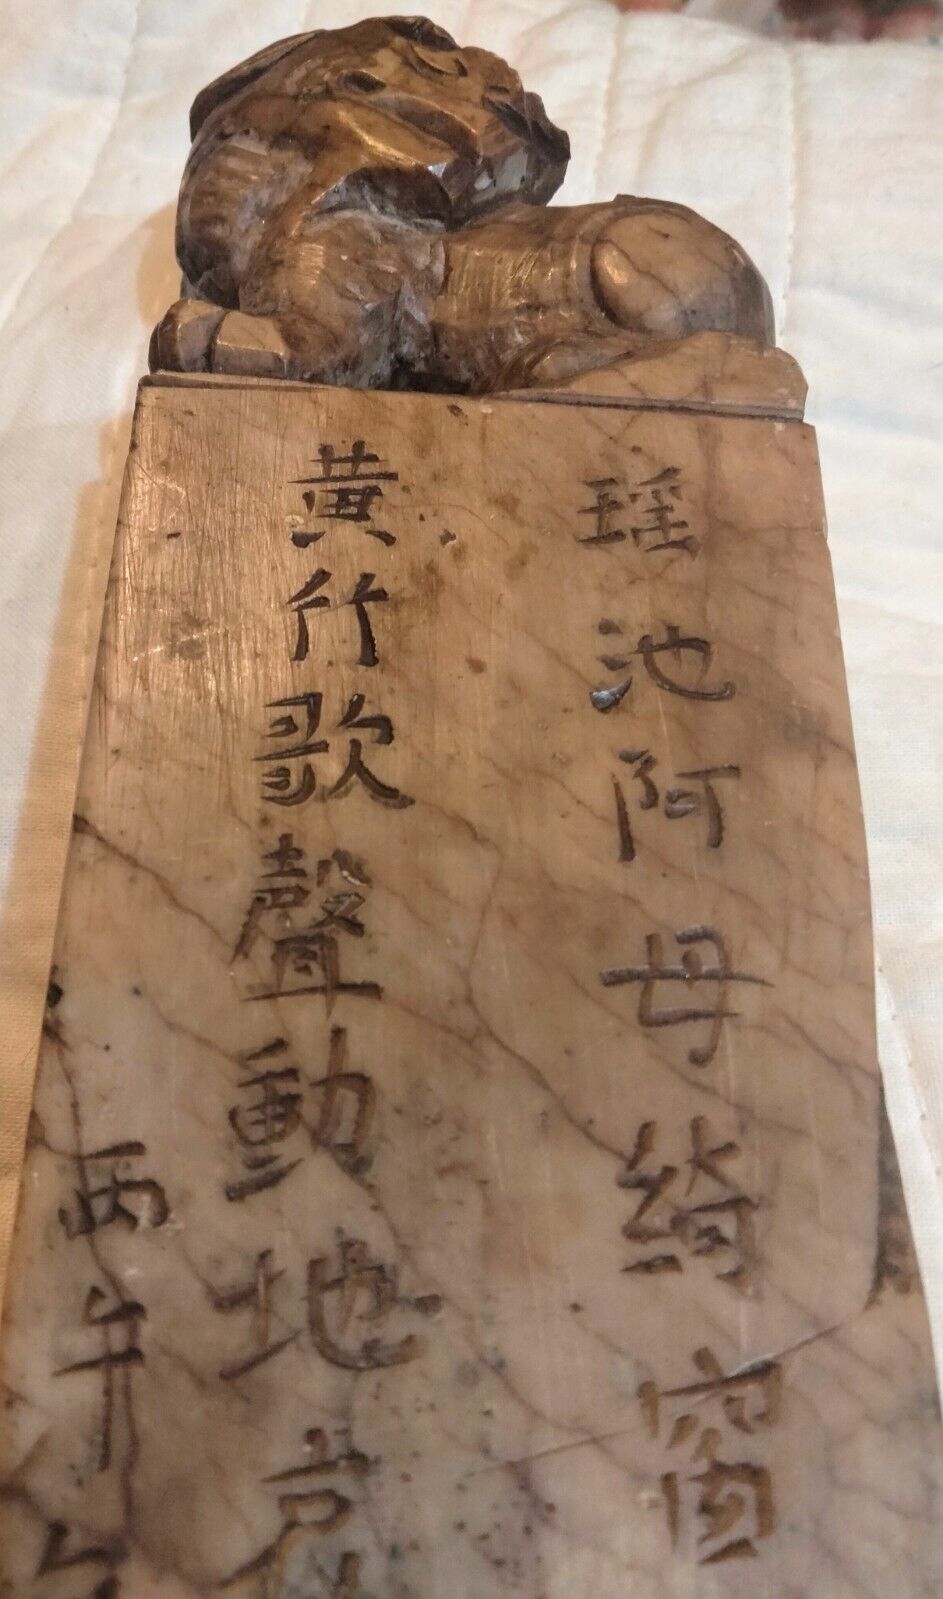 瑶池阿母綺窗
黃竹歌聲動地哀
丙午